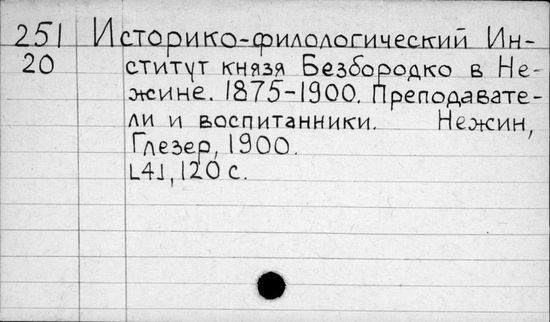 251 Историко-филологический Ин-
20 ститут князя Безбородко в Не-
жине. 1875-1900. Преподавате-
ли и воспитанники. Нежин,
Глезер, 1900.
[4], 120 с.